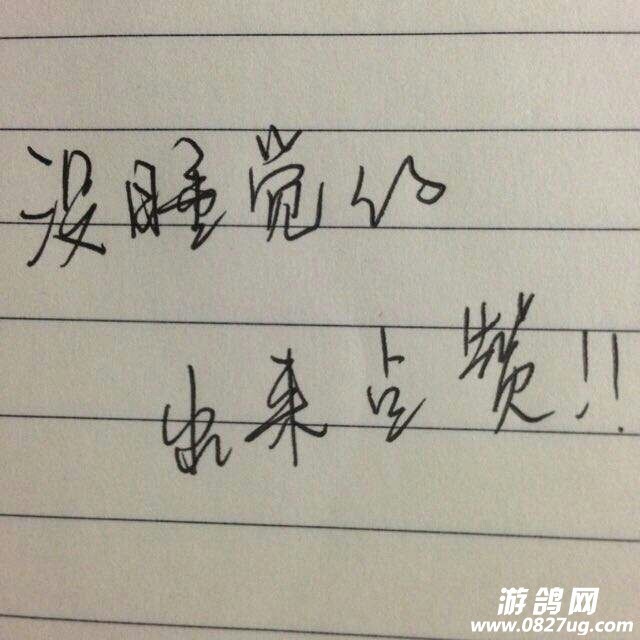 没睡觉的
出来点赞!!
游鸽网
www.0827ug.com